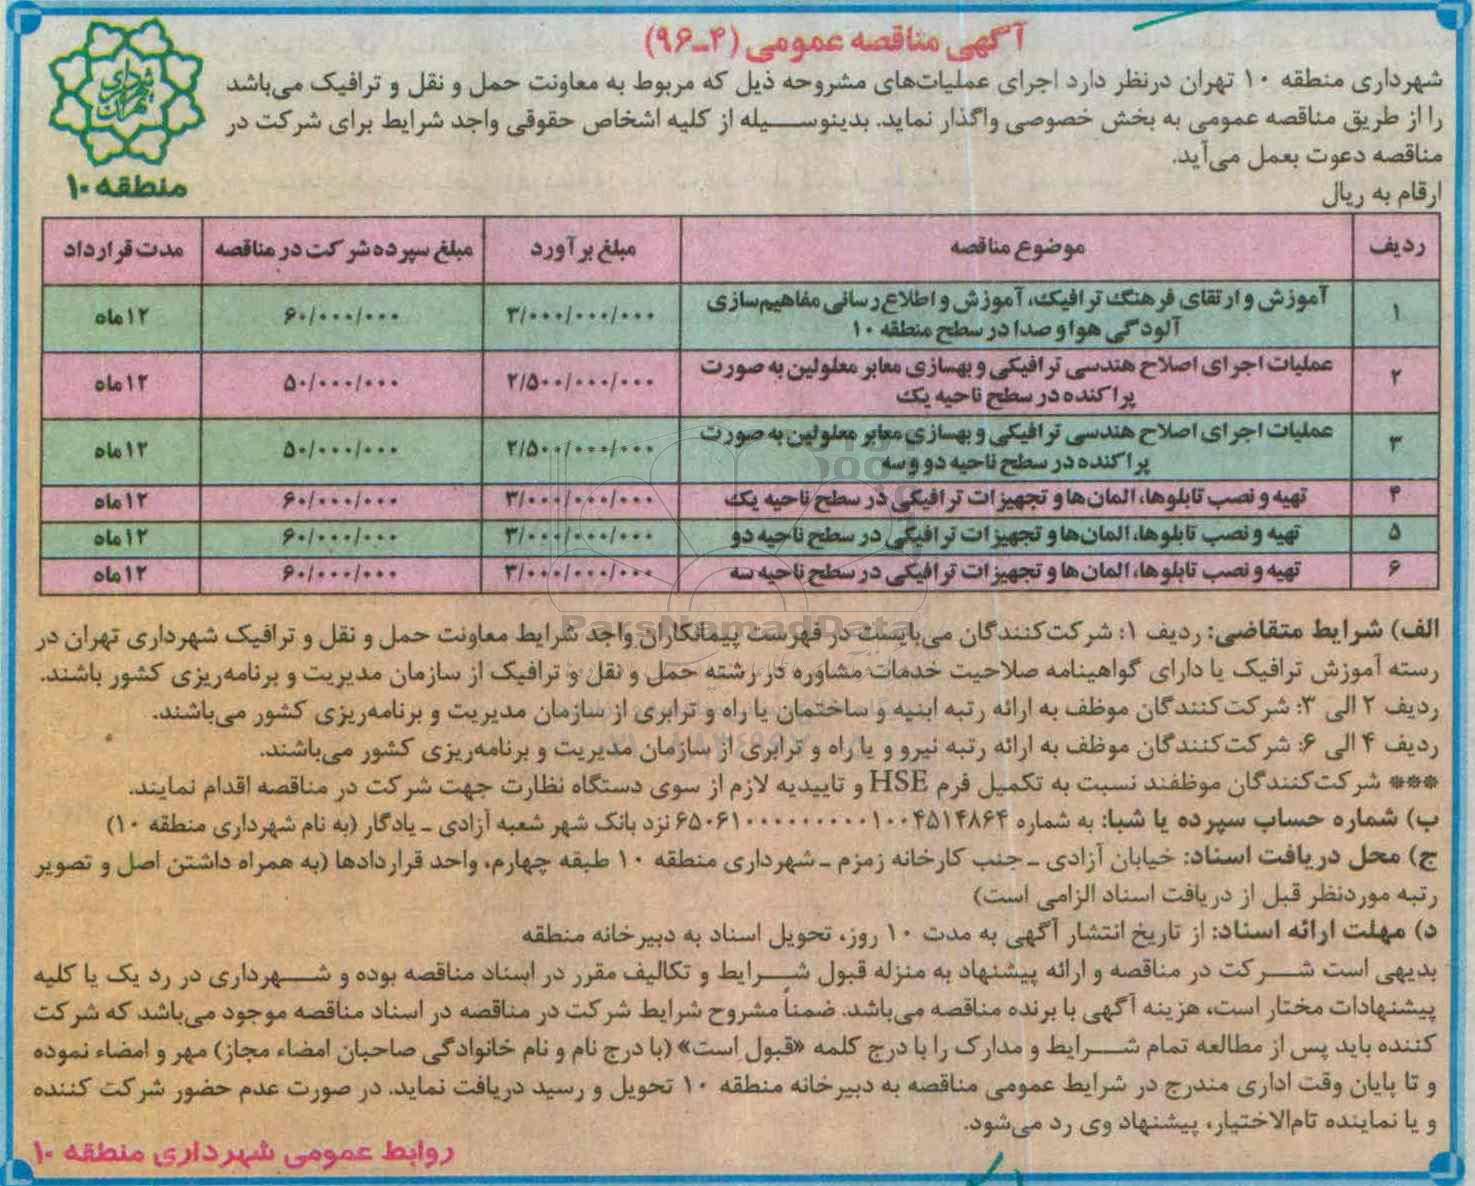 آگهی مناقصه عمومی (۴-۹۶)
شهرداری تهران
منطقه ۱۰
شهرداری منطقه ۱۰ تهران درنظر دارد اجرای عملیات‌های مشروحه ذیل که مربوط به معاونت حمل و نقل و ترافیک می‌باشد
را از طریق مناقصه عمومی به بخش خصوصی واگذار نماید. بدینوسیله از کلیه اشخاص حقوقی واجد شرایط برای شرکت در
مناقصه دعوت بعمل می‌آید.
ارقام به ریال
ردیف موضوع مناقصه مبلغ برآورد مبلغ سپرده شرکت در مناقصه مدت قرارداد
۱ آموزش و ارتقای فرهنگ ترافیک، آموزش و اطلاع‌رسانی مفاهیم‌سازی
آلودگی هوا و صدا در سطح منطقه ۱۰ ۳/۰۰۰/۰۰۰/۰۰۰ ۶۰/۰۰۰/۰۰۰ ۱۲ ماه
۲ عملیات اجرای اصلاح هندسی ترافیکی و بهسازی معابر معلولین به صورت
پراکنده در سطح ناحیه یک ۲/۵۰۰/۰۰۰/۰۰۰ ۵۰/۰۰۰/۰۰۰ ۱۲ ماه
۳ عملیات اجرای اصلاح هندسی ترافیکی و بهسازی معابر معلولین به صورت
پراکنده در سطح ناحیه دو و سه ۲/۵۰۰/۰۰۰/۰۰۰ ۵۰/۰۰۰/۰۰۰ ۱۲ ماه
۴ تهیه و نصب تابلوها، المان‌ها و تجهیزات ترافیکی در سطح ناحیه یک ۳/۰۰۰/۰۰۰/۰۰۰ ۶۰/۰۰۰/۰۰۰ ۱۲ ماه
۵ تهیه و نصب تابلوها، المان‌ها و تجهیزات ترافیکی در سطح ناحیه دو ۳/۰۰۰/۰۰۰/۰۰۰ ۶۰/۰۰۰/۰۰۰ ۱۲ ماه
۶ تهیه و نصب تابلوها، المان‌ها و تجهیزات ترافیکی در سطح ناحیه سه ۳/۰۰۰/۰۰۰/۰۰۰ ۶۰/۰۰۰/۰۰۰ ۱۲ ماه
ParsNamadData
الف) شرایط متقاضی: ردیف ۱: شرکت‌کنندگان می‌بایست در فهرست پیمانکاران واجد شرایط معاونت حمل و نقل و ترافیک شهرداری تهران در
رسته آموزش ترافیک یا دارای گواهینامه صلاحیت خدمات مشاوره در رشته حمل و نقل و ترافیک از سازمان مدیریت و برنامه‌ریزی کشور باشند.
ردیف ۲ الی ۳: شرکت‌کنندگان موظف به ارائه رتبه ابنیه و ساختمان یا راه و ترابری از سازمان مدیریت و برنامه‌ریزی کشور می‌باشند.
ردیف ۴ الی ۶: شرکت‌کنندگان موظف به ارائه رتبه نیرو و یا راه و ترابری از سازمان مدیریت و برنامه‌ریزی کشور می‌باشند.
*** شرکت‌کنندگان موظفند نسبت به تکمیل فرم HSE و تاییدیه لازم از سوی دستگاه نظارت جهت شرکت در مناقصه اقدام نمایند.
ب) شماره حساب سپرده یا شبا: به شماره ۶۵۰۶۱۰۰۰۰۰۰۰۰۰۰۱۰۰۴۵۱۴۸۶۴ نزد بانک شهر شعبه آزادی - یادگار (به نام شهرداری منطقه ۱۰)
ج) محل دریافت اسناد: خیابان آزادی - جنب کارخانه زمزم - شهرداری منطقه ۱۰ طبقه چهارم، واحد قراردادها (به همراه داشتن اصل و تصویر
رتبه موردنظر قبل از دریافت اسناد الزامی است)
د) مهلت ارائه اسناد: از تاریخ انتشار آگهی به مدت ۱۰ روز، تحویل اسناد به دبیرخانه منطقه
بدیهی است شرکت در مناقصه و ارائه پیشنهاد به منزله قبول شرایط و تکالیف مقرر در اسناد مناقصه بوده و شهرداری در رد یک یا کلیه
پیشنهادات مختار است، هزینه آگهی با برنده مناقصه می‌باشد. ضمناً مشروح شرایط شرکت در مناقصه در اسناد مناقصه موجود می‌باشد که شرکت
کننده باید پس از مطالعه تمام شرایط و مدارک را با درج کلمه «قبول است» (با درج نام و نام خانوادگی صاحبان امضاء مجاز) مهر و امضاء نموده
و تا پایان وقت اداری مندرج در شرایط عمومی مناقصه به دبیرخانه منطقه ۱۰ تحویل و رسید دریافت نماید. در صورت عدم حضور شرکت کننده
و یا نماینده تام‌الاختیار، پیشنهاد وی رد می‌شود.
روابط عمومی شهرداری منطقه ۱۰